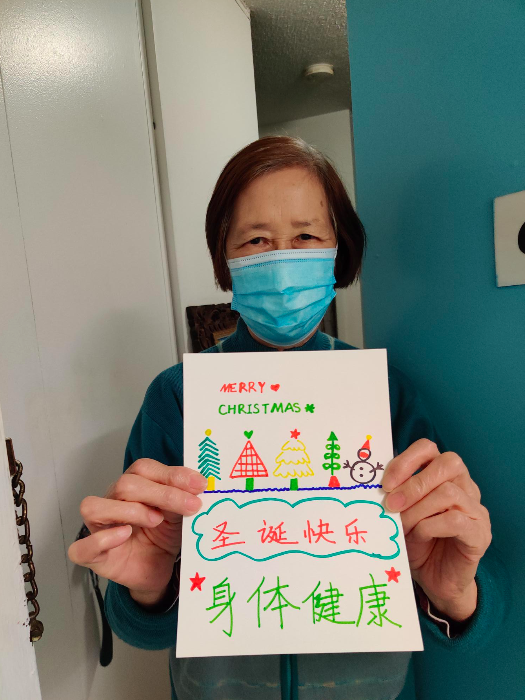 MERRY
CHRISTMAS
圣诞快乐
身体健康